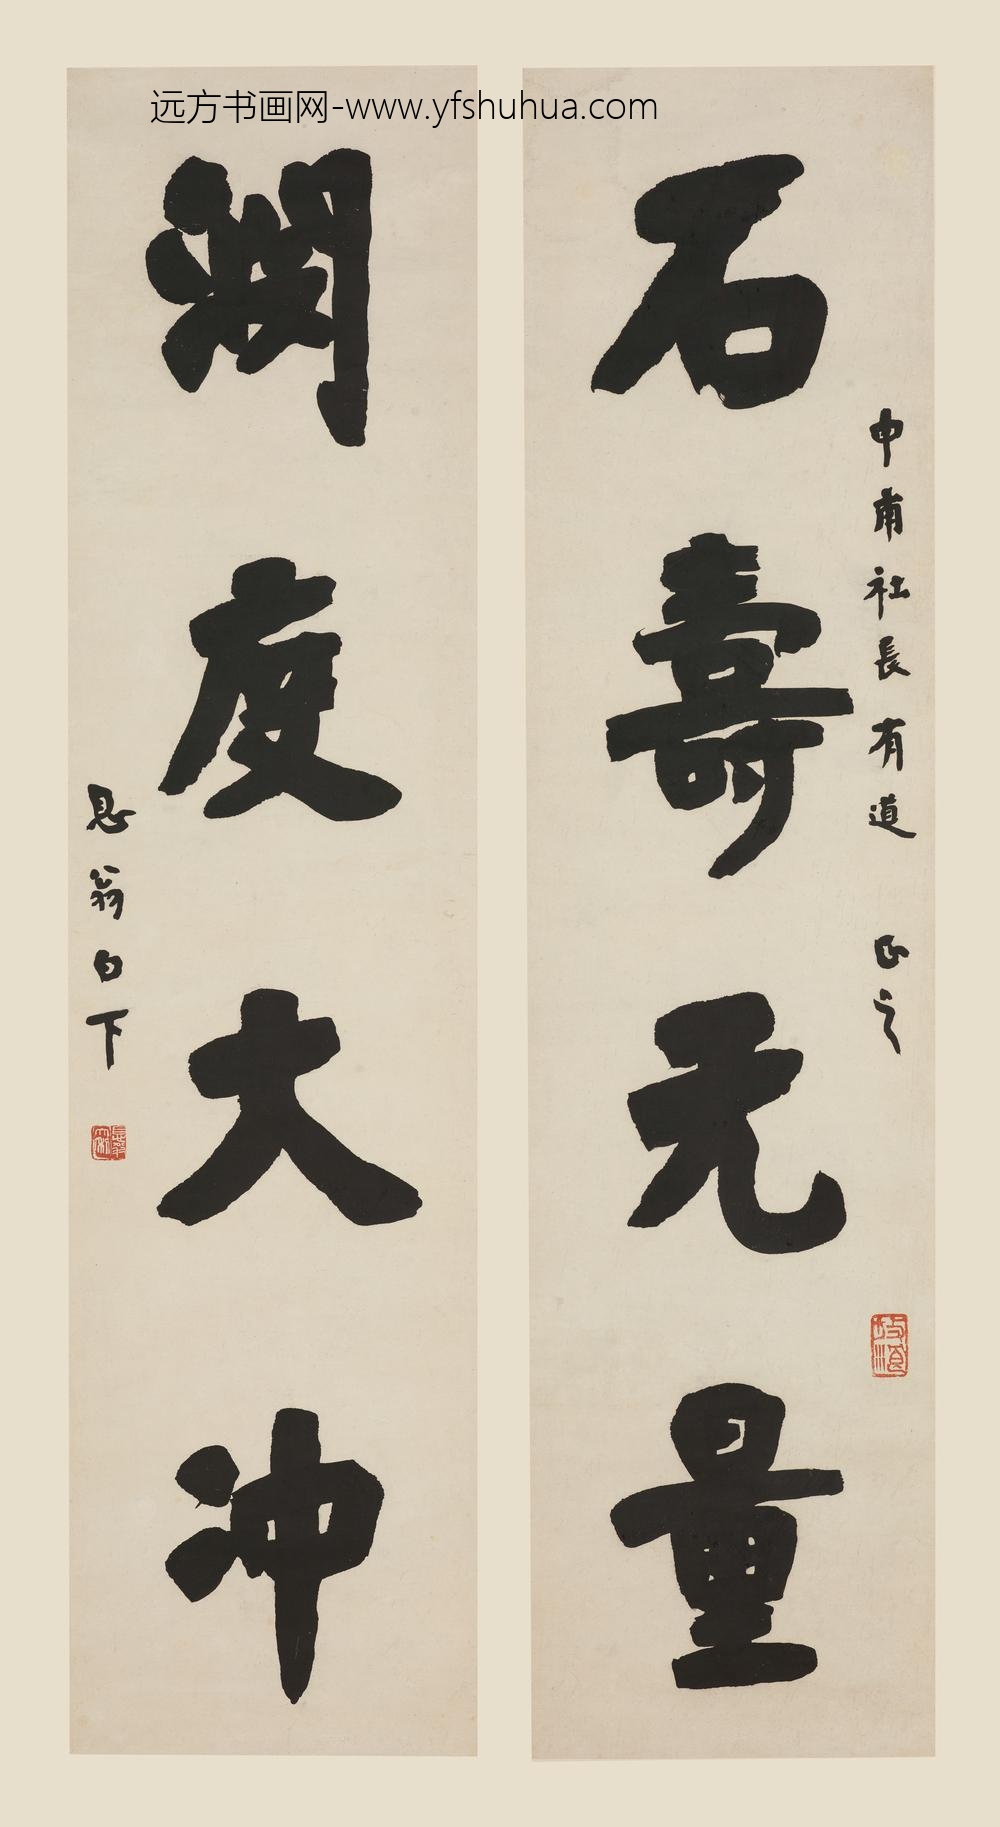 远方书画网-www.yfshuhua.com
石壽无量
渊度大冲
申甫社長有道 正之
息翁白下